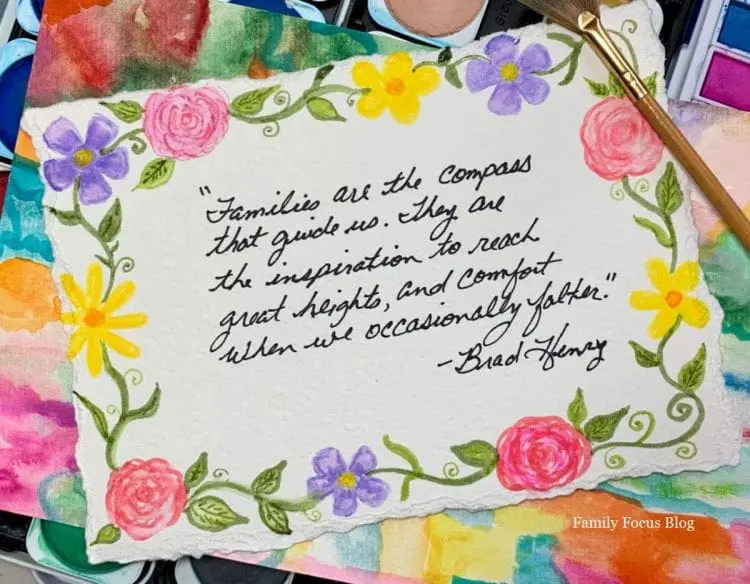 "Families are the compass
that guide us. They are
the inspiration to reach
great heights, and comfort
when we occasionally falter."
-Brad Henry
Family Focus Blog